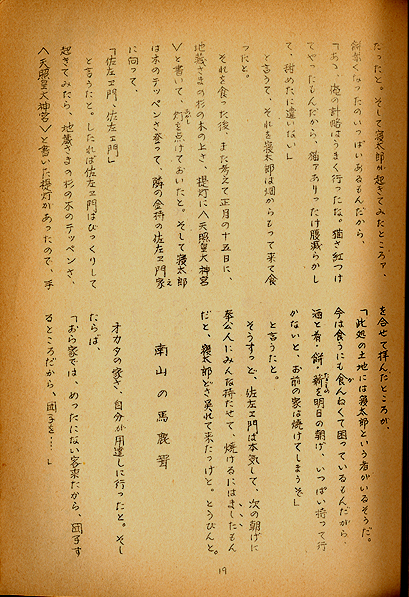 たったと。そして寝太郎が起きてみたところァ、
餅無くなったのいっぱいあるもんだから、
「あゝ、俺の計略はうまく行ったな。猫さ紅つけ
てやったもんだから、猫ァありったけ腹減らかし
て、甜めたに違いない」
と言うて、それを寝太郎は畑からもって来て食
ったと。
それを食った後、また考えて正月の十五日に、
地蔵さまの杉の木の上さ、提灯に〈天照皇大神宮
〉と書いて、灯を点けておいたと。そして寝太郎
は木のテッペンさ登って、隣の金持の佐左ヱ門家
に向って、
「佐左ヱ門、佐左ヱ門」
と言うたと。したれば佐左ヱ門はびっくりして
起きてみたら、地蔵さまの杉の木のテッペンさ、
〈天照皇大神宮〉と書いた提灯があったので、手
を合せて拝んだところが、
「此処の土地には寝太郎という者がいるそうだ。
今は食うにも食んねくて困っているもんだから、
酒と肴・餅・薪を明日の朝げ、いっぱい持って行
かないと、お前の家は焼けてしまうぞ」
と言うたと。
そうすっど、佐左ヱ門は本気して、次の朝げに
奉公人にみんな持たせて、焼けるにはましたもん
だと、寝太郎どさ呉れて来たっけど。とうびんと。
南山の馬鹿聟
オカタの家さ、自分が用達しに行ったと。そし
たらば、
「おら家では、めったにない客来だから、団子す
るところだから、団子を…」
19